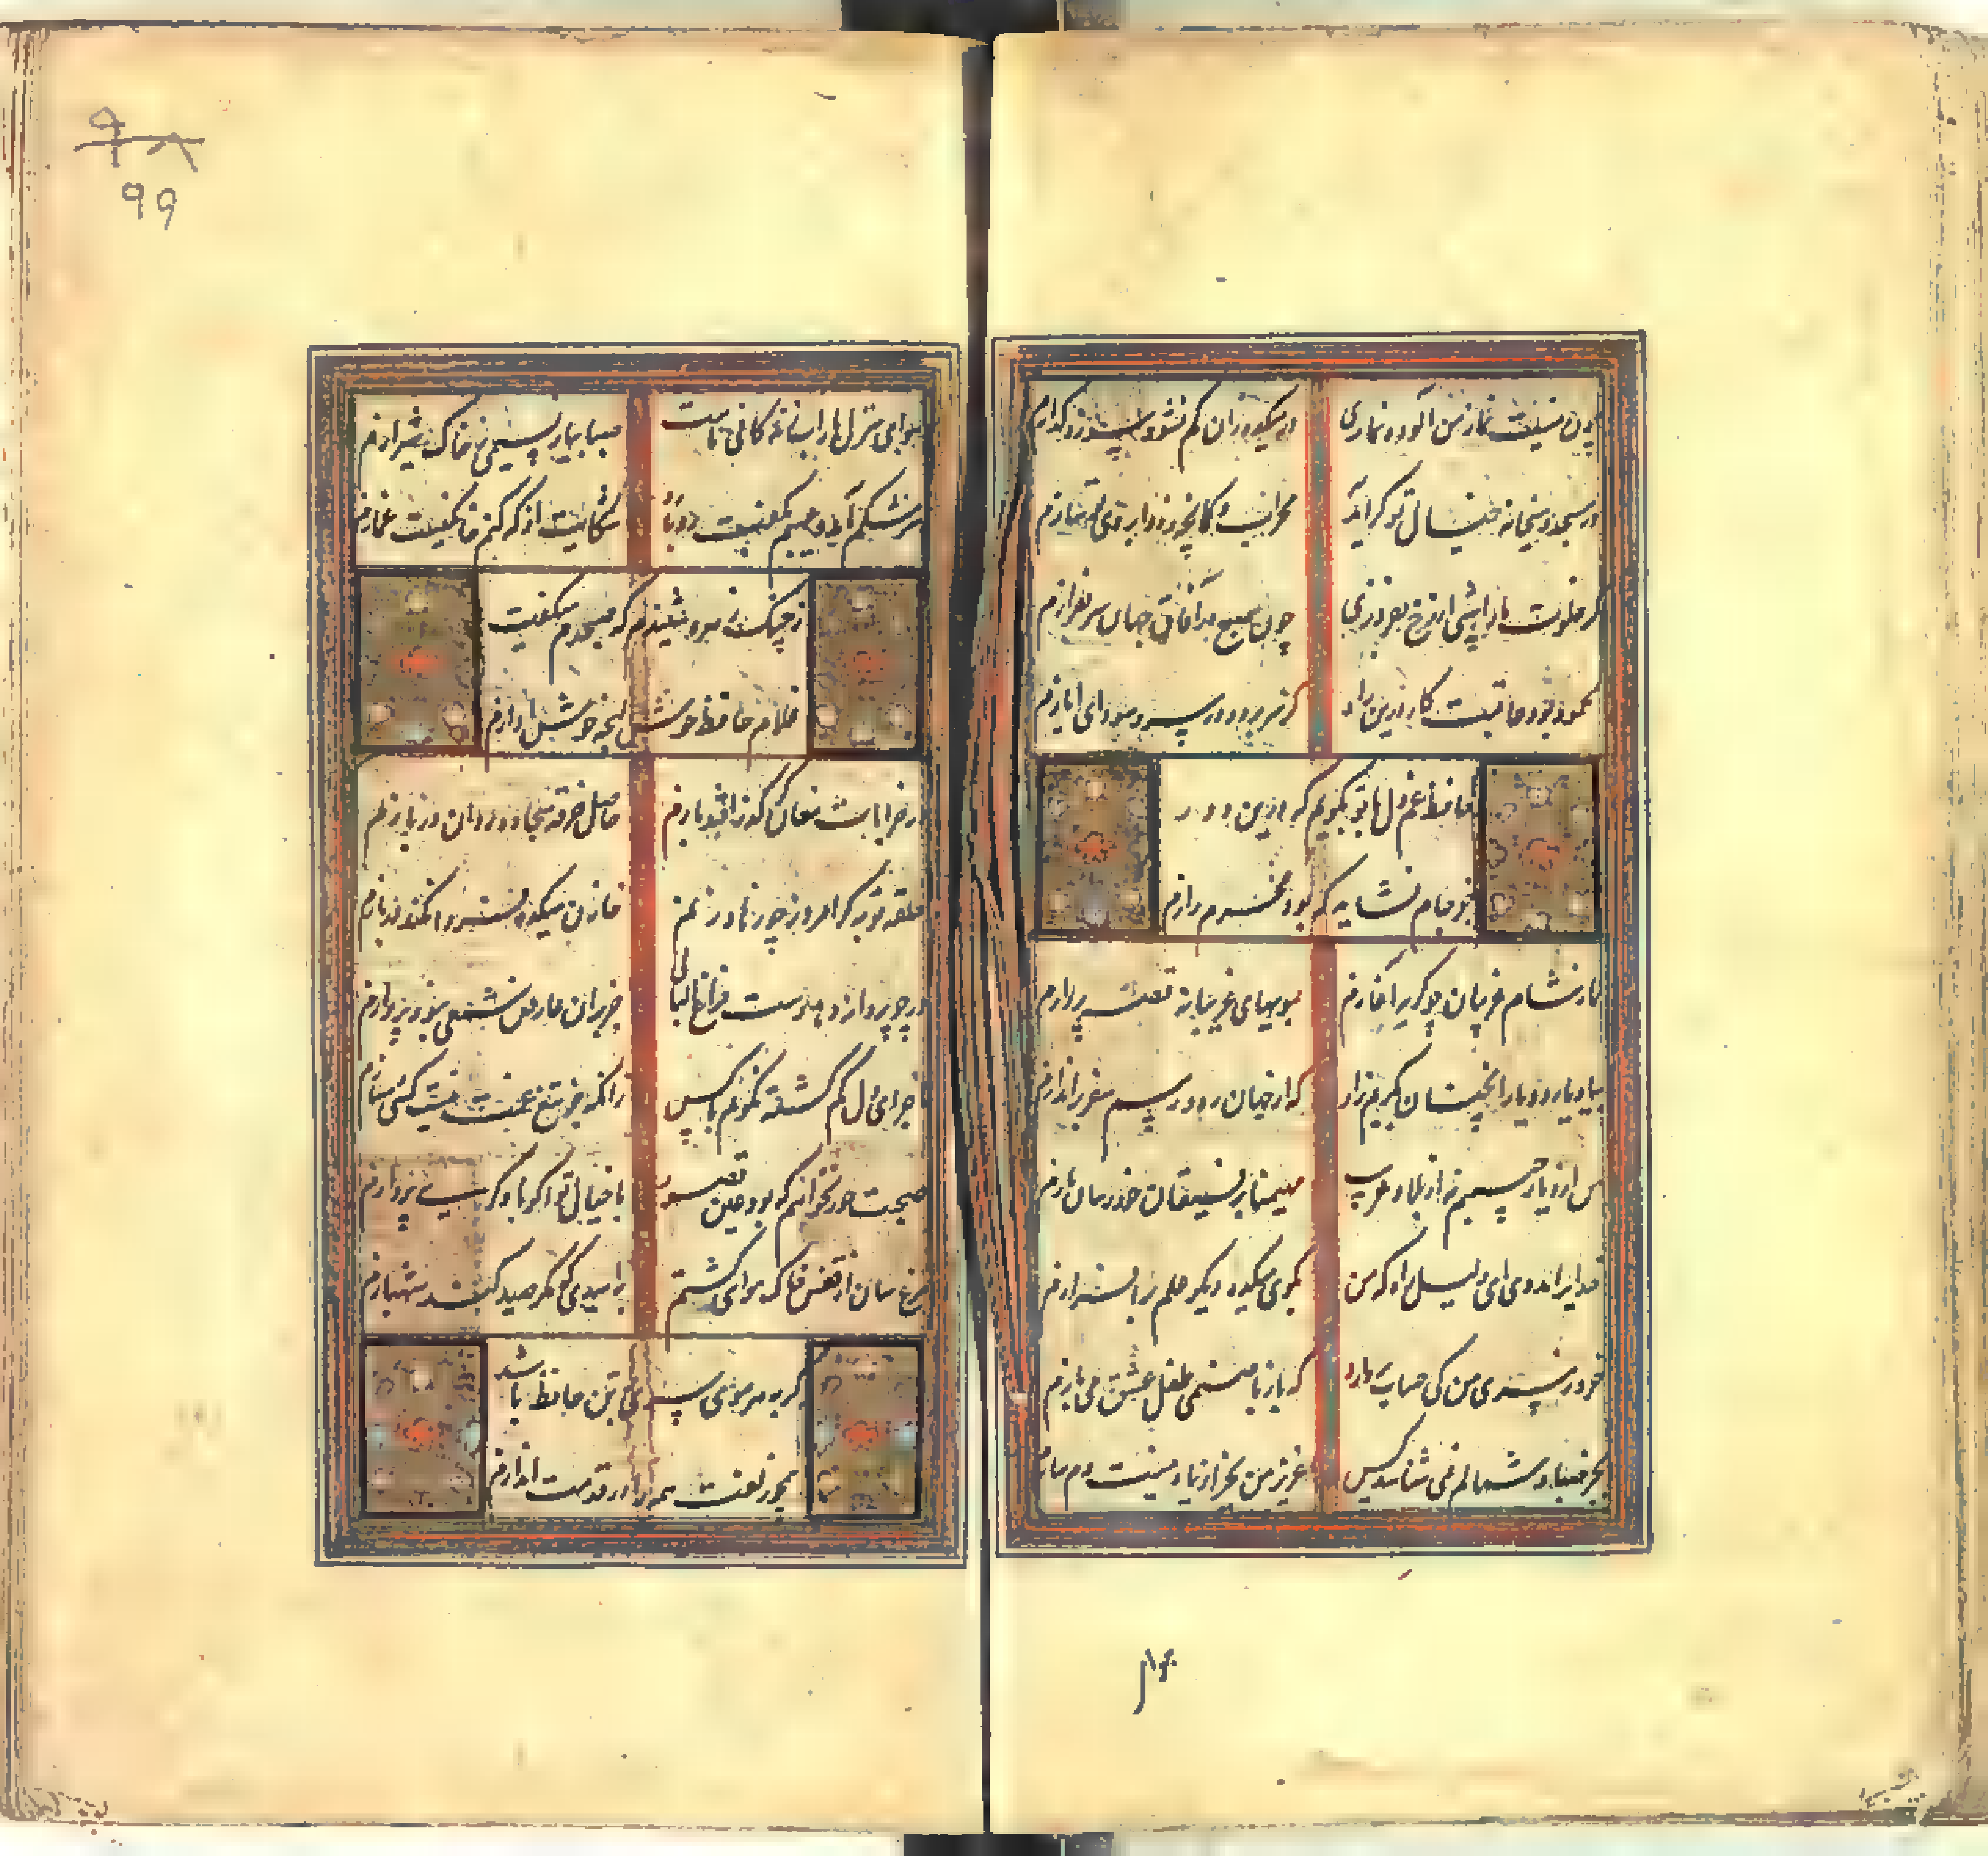 چون نیست نماز من آلوده نمازی
در میکده زان کم نشود سوز و گدازم
در مسجد و میخانه خیالت اگر آید
محراب و کمانچه ز دو ابروی تو سازم
گر خلوت ما را شبی از رخ بفروزی
چون صبح بر آفاق جهان سر بفرازم
محمود بود عاقبت کار درین راه
گر سر برود در سر سودای ایازم
حافظ غم دل با تو بگویم که درین دور
جز جام نشاید که بود محرم رازم
نماز شام غریبان چو گریه آغازم
بمویهای غریبانه قصه پردازم
بیاد یار و دیار آنچنان بگریم زار
که از جهان ره و رسم سفر براندازم
من از دیار حبیبم نه از بلاد غریب
مهیمنا برفیقان خود رسان بازم
خدایرا مددی ای دلیل راه که من
بکوی میکده دیگر علم برافرازم
خرد ز پیری من کی حساب بردارد
که باز با صنمی طفل عشق می بازم
بجز صبا و شمالم نمی شناسد کس
عزیز من که بجز باد نیست دم سازم
۸۴
۹۸
۹۹
هوای منزل یار آب زندگانی ماست
صبا بیار نسیمی ز خاک شیرازم
سرشکم آمد و عیبم بگفت روباروی
شکایت از که کنم خانگیست غمازم
ز چنگ زهره شنیدم که صبحدم میگفت
غلام حافظ خوش لهجه خوش آوازم
در خرابات مغان گر گذر افتد بازم
حاصل خرقه و سجاده روان دربازم
حلقه توبه گر امروز چو زهاد زنم
خازن میکده فردا نکند در بازم
ور چو پروانه دهد دست فراغ البالی
جز بران عارض شمعی نبود پروازم
ماجرای دل گم گشته نگویم با کس
زانکه جز تیغ غمت نیست کسی دمسازم
صحبت حور نخواهم که بود عین قصور
با خیال تو اگر با دگری پردازم
مرغ سان از قفس خاک هوائی گشتم
بامیدی که مگر صید کند شهبازم
گر بهر موی سری بر تن حافظ باشد
همچو زلفت همه را در قدمت اندازم